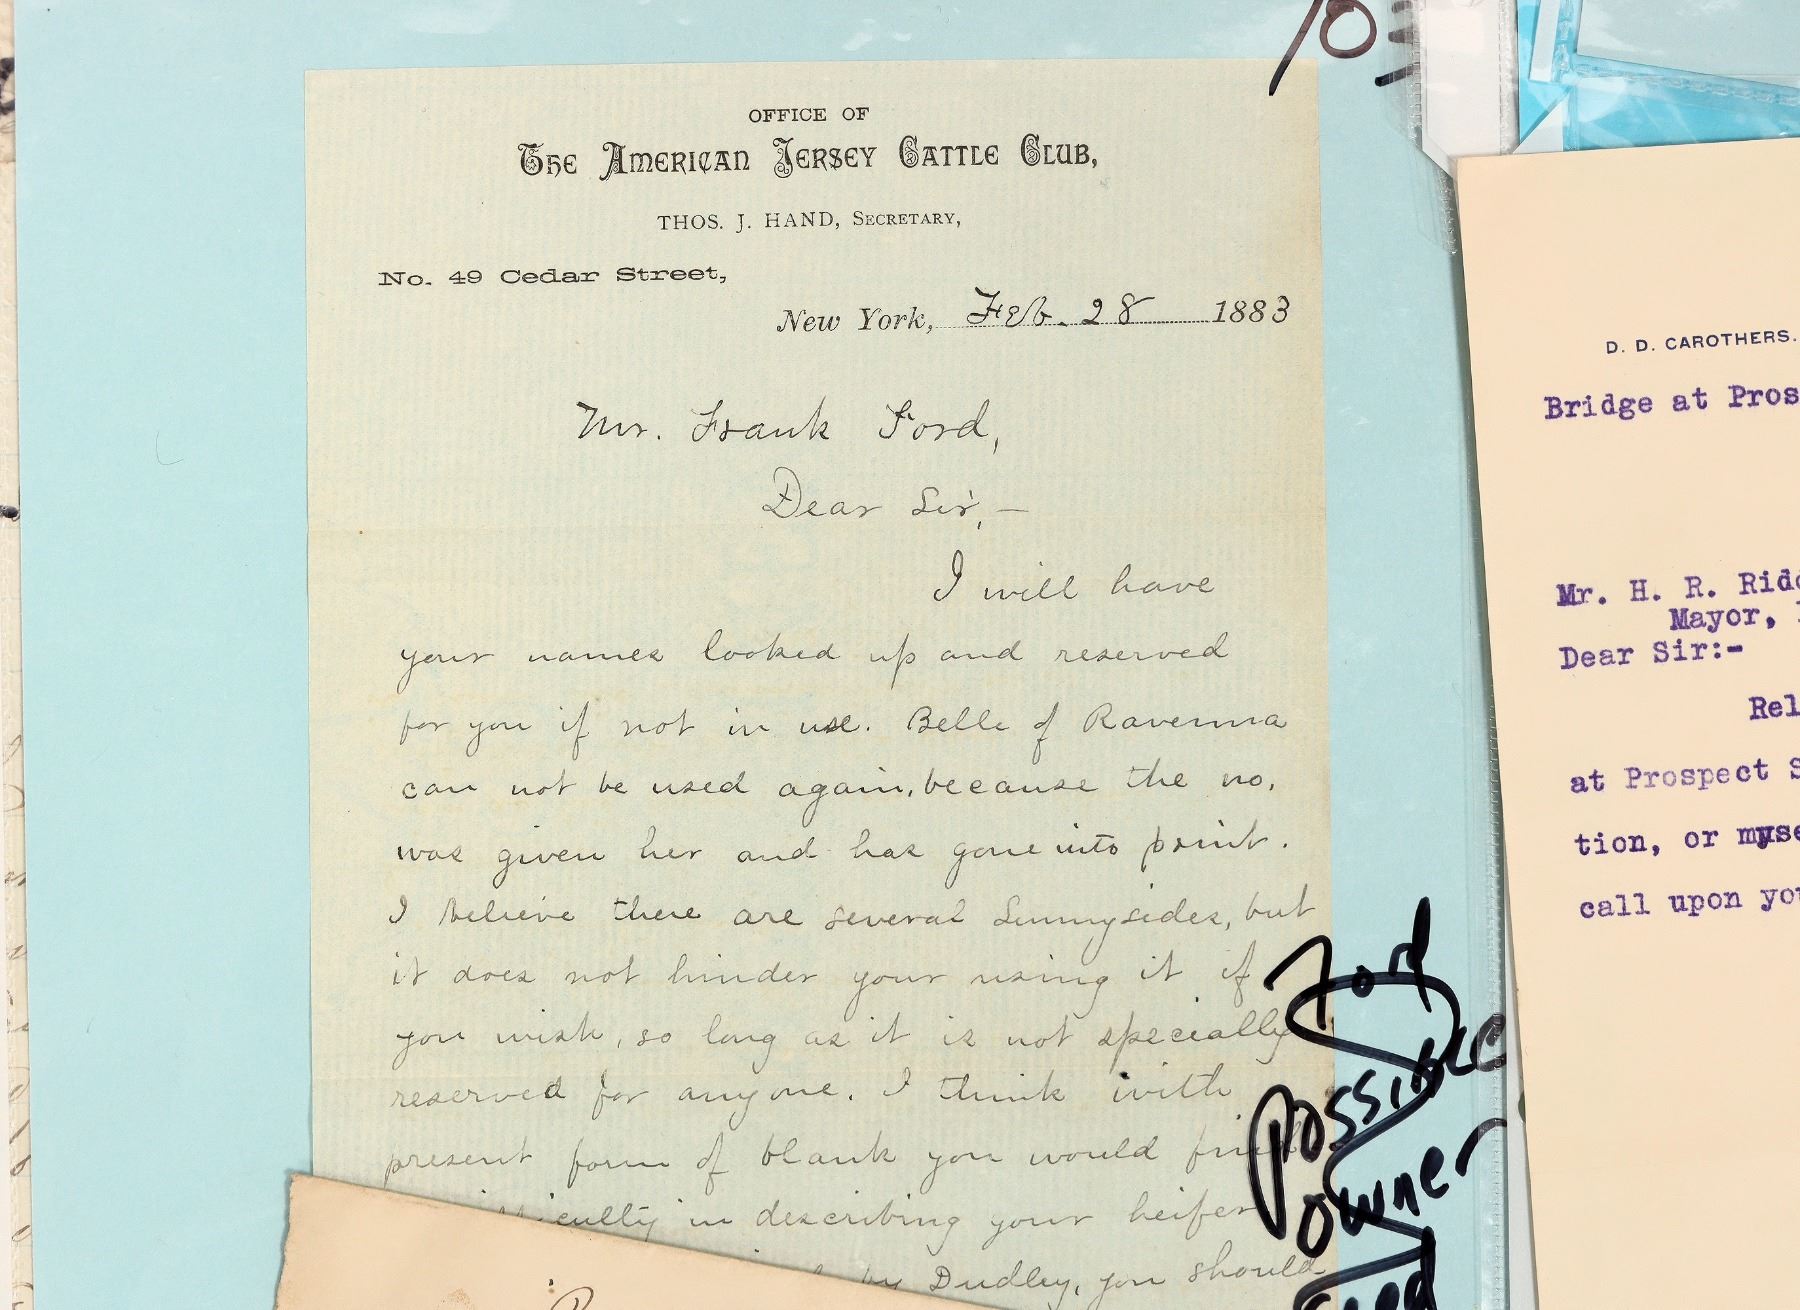 OFFICE OF
The American Jersey Cattle Club,
THOS. J. HAND, Secretary,
No. 49 Cedar Street,
New York, Feb. 28 1883
Mr. Frank Ford,
Dear Sir,—
I will have
your names looked up and reserved
for you if not in use. Belle of Ravenna
can not be used again, because the no.
was given her and has gone into print.
I believe there are several Sunnysides, but
it does not hinder your using it if
you wish, so long as it is not specially
reserved for anyone. I think with
present form of blank you would find
in describing your heifer
by Dudley, you should
10
Ford
Possible
owner
D. D. CAROTHERS.
Bridge at
Mr. H. R.
Mayor,
Dear Sir:-
at Prospect
tion, or
call upon